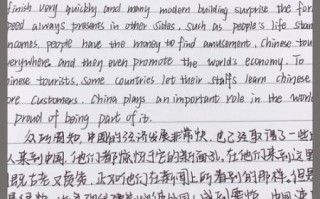 finish very quickly and many modern building surprise the for
peed always presents in other sides. such as people's life. Stan
names. people have the money to find amusement. Chinese tou
verywhere and then even promote the world's economy. To
inese tourists, Some countries let their staffs learn chinese
ore Customers. China plays an important role in the world
proud of being part of it.
众所周知，中国的经济发展非常快，也已经取得了一些
人来到中国，他们都惊讶于它的新面孔，在他们来到这里
既古老又贫穷，正如他们在新闻上所看到的那样，但是